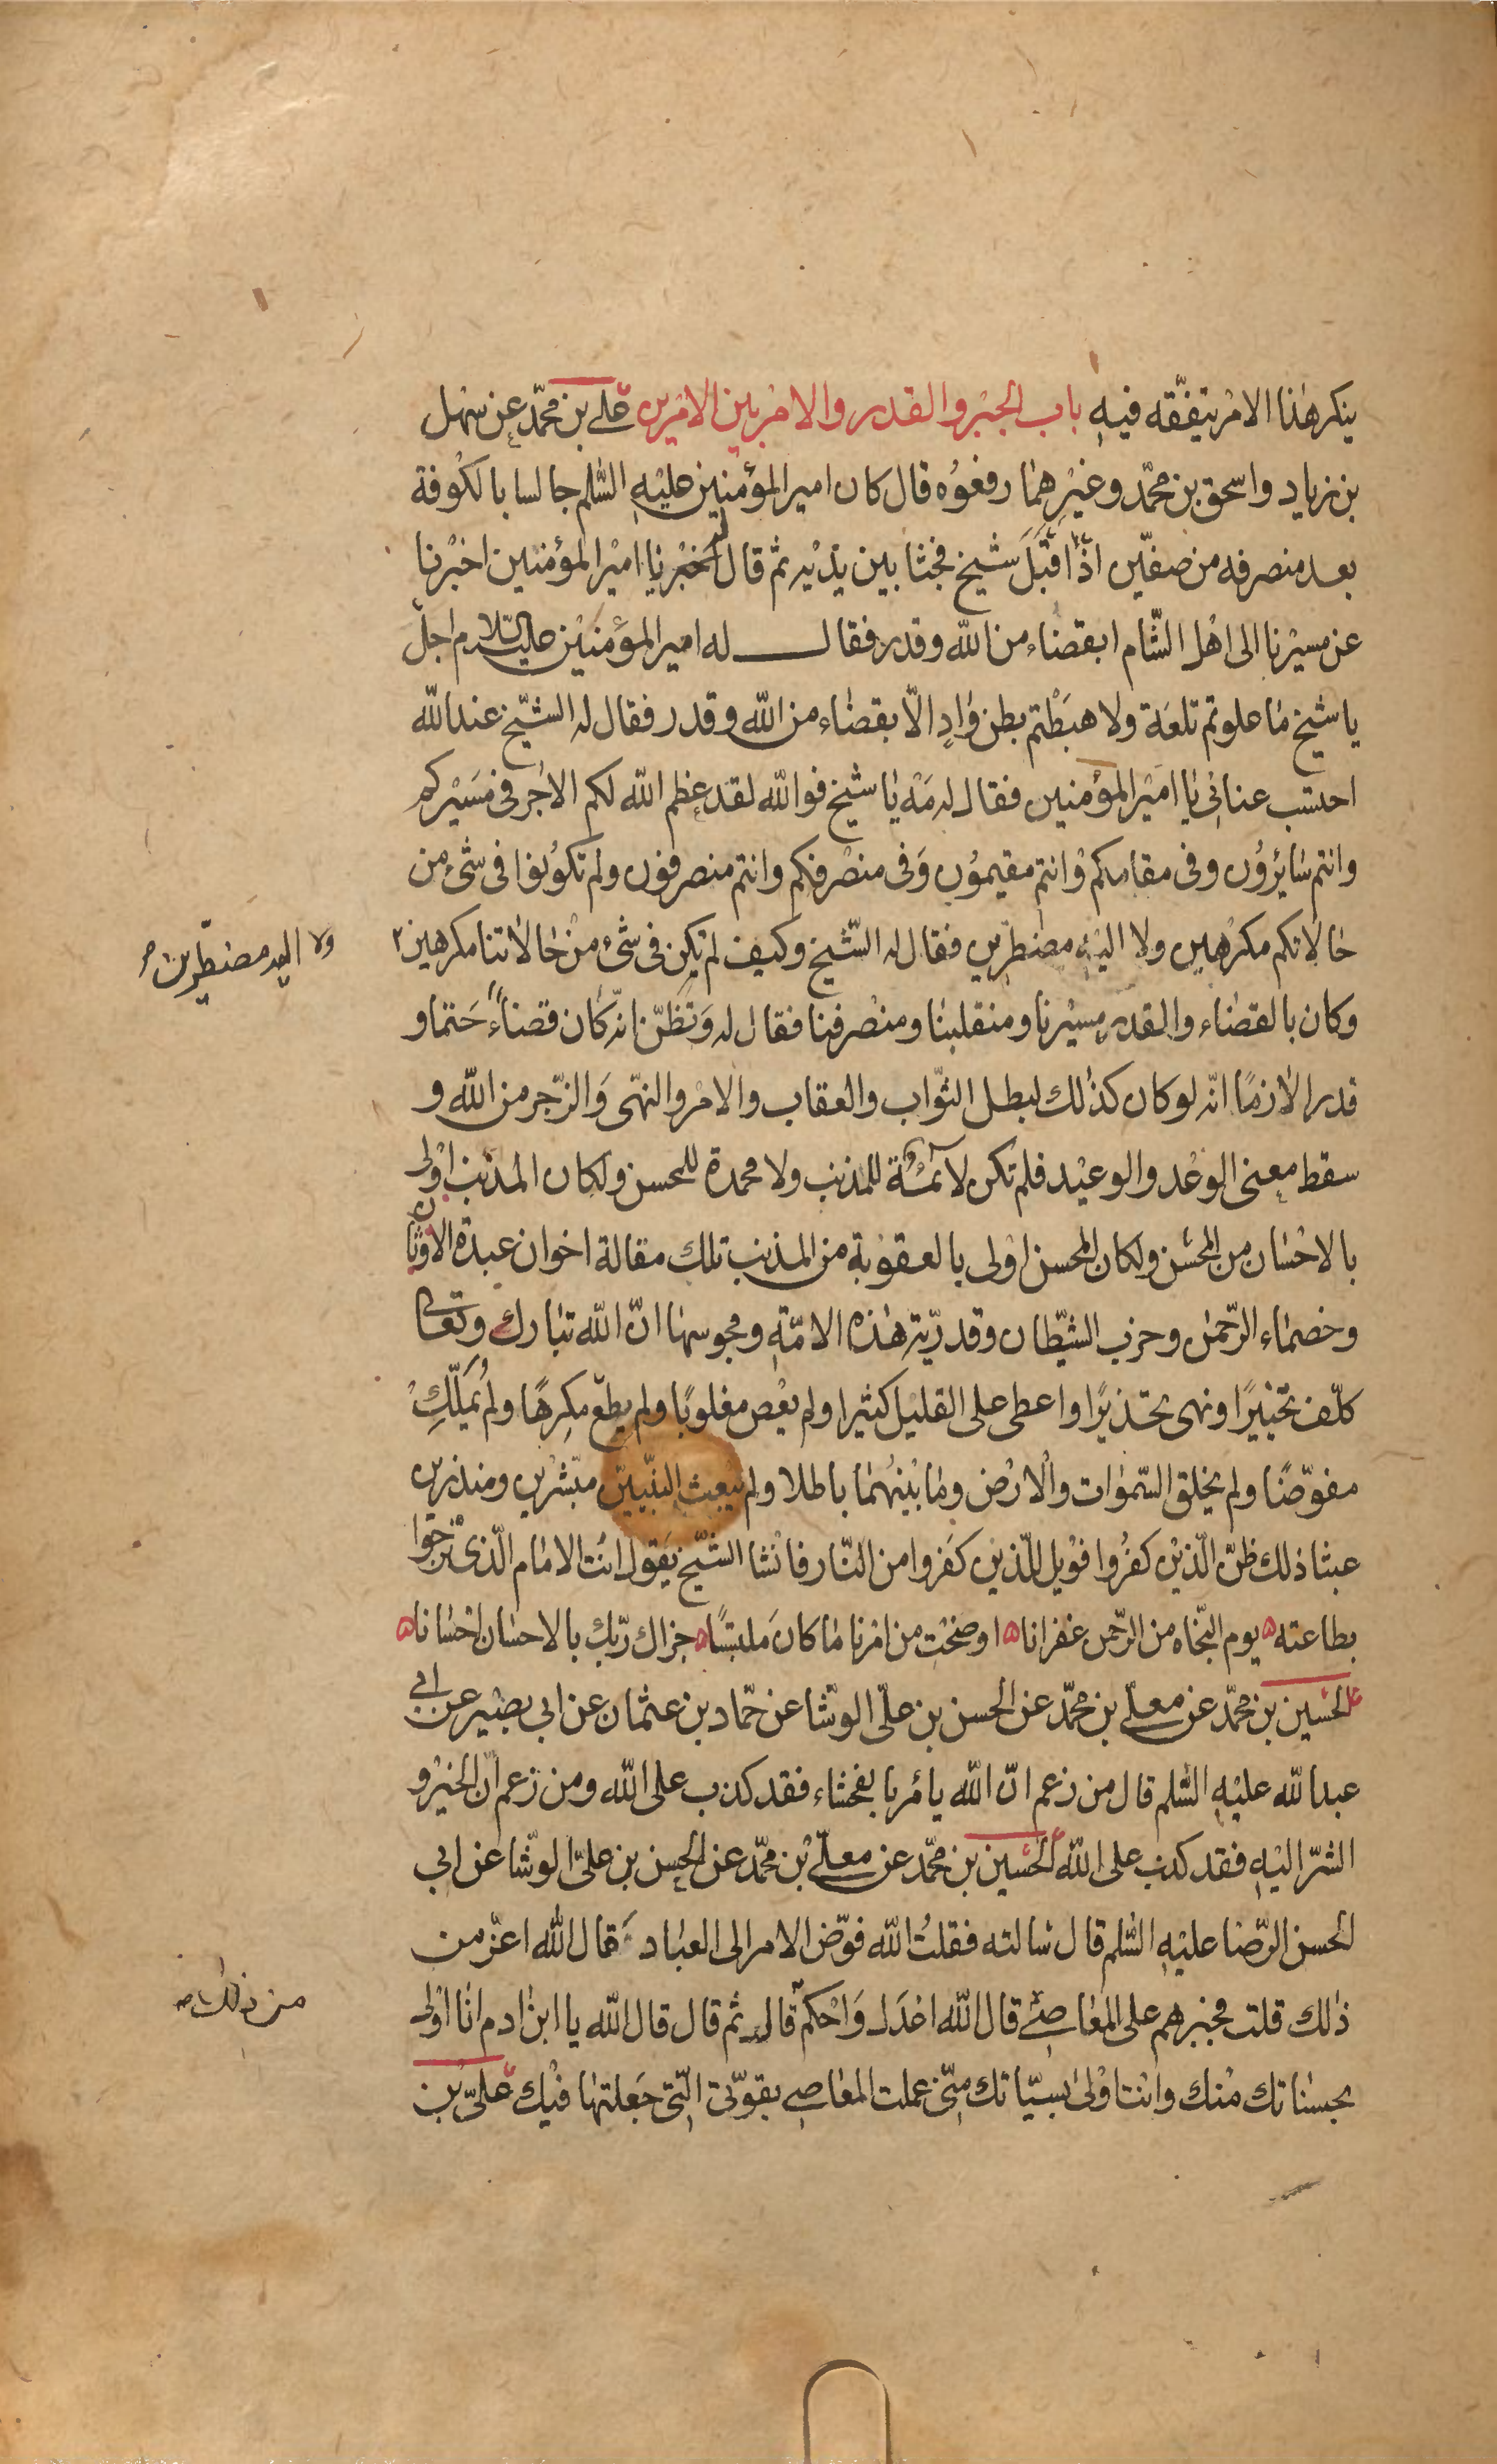 ينكر هٰذا الامر يتفقّه فيهِ باب الجبر والقدر والامر بين الامرين علي بن محمّد عن سهل
بن زياد واسحق بن محمّد وغيرهما رفعوُه قال كان امير المؤمنين عليهِ السّلم جالسا بالكوفة
بعد منصرفه من صفّين اذ اقبَلَ شيخ فجثا بين يديه ثم قال يا امير المؤمنين اخبرنا
عن مسيرنا الى اهل الشّام ابقضاء من اللّه وقدر فقال له امير المؤمنين عليه السلام اجل
يا شيخ ما علوتم تلعَة ولا هبَطْتم بطن وٰادٍ الّا بقضاء من اللّه وقدر فقال له الشيّخ عند اللّه
احتسب عنائى يا امير المؤمنين فقال له مَهْ يا شيخ فواللّه لقد عظم اللّه لكم الاجر فى مسَيركم
وانتم سٰائروُن وفى مقامكم وانتم مقيموُن وَفى منصرفكم وانتم منصرفون ولم تكوُنوا فى شئ من
حٰالاتكم مكرهين ولا اليهِ مضطرين فقال له الشّيخ وكيف لم تكن فى شئ من حٰالاتنا مكرهين ٢
ولا اليه مضطرّين ص
وكان بالقضاء والقدر مسيرنا ومنقلبنٰا ومنصرفنا فقال له وَتظنّ انّه كان قضاءً حَتما و
قدرا لازمًا انّه لو كان كذٰلك لبطل الثّواب والعقاب والامر والنهّى وَالزّجر من اللّه و
سقط معنى الوعْد والوعيْد فلم تكن لائمة للمذنب ولا محمدة للمحسن ولكان المذنب اوْلى
بالاحسٰان من المحسن ولكان المحسن اوْلى بالعقوبَة من المذنب تلك مقالة اخوان عبدة الاوثان
وخصمٰاء الرّحمٰن وحزب الشيّطان وقدريّة هٰذه الامّةِ ومجوسها انّ اللّه تبٰارك وتعالى
كلّف تخييرًا ونهى تحذيرًا واعطى على القليل كثيرا ولم يعْص مغلوبًا ولم يطع مكرِهًا ولم يُمَلّكْ
مفوّضًا ولم يخلق السّموٰات والارض ومٰا بينهُمٰا باطلا ولم يبعث النبّيين مبّشرين ومنذرين
عبثا ذلك ظنّ الّذين كفرُوا فوْيل للّذين كفَروا من النّار فانشا الشّيخ يَقول انت الامٰام الّذى نرجوا
بطاعته ۵ يوم النجّاه من الرّحمن غفرانا ۵ اوضحت من امرنا مٰا كانَ ملبتسًا ۵ جزاك ربّك بالاحسٰان احسٰانا ۵
الحسين بن محمّد عن معلّى بن محمّد عن الحسن بن علّى الوشّا عن حمّاد بن عثمان عن ابى بصير عن ابى
عبد اللّه عليْهِ السّلم قال من زعم انّ اللّه يأمر بالفحشاء فقد كذب على اللّه ومن زعم انّ الخير و
الشرّ اليْهِ فقد كذب على اللّه الحسين بن محمّد عن معلّى بن محمّد عن الحسن بن علىّ الوشّا عن ابى
الحسن الرّضٰا عليْهِ السّلم قال سٰالته فقلتُ اللّه فوّض الامر الى العبٰاد قال اللّه اعزّ من
ذٰلك قلت فجبرهم على المعٰاصى قال اللّه اعْدَل وَاحْكم قال ثم قال قال اللّه يا ابن ادم انٰا اوْلى
من ذلك ص
بحسناتك منك وانت اوْلى بسيّاتك منّى عملت المعاصى بقوّتى الّتى جَعلتهٰا فيْك علىّ بن